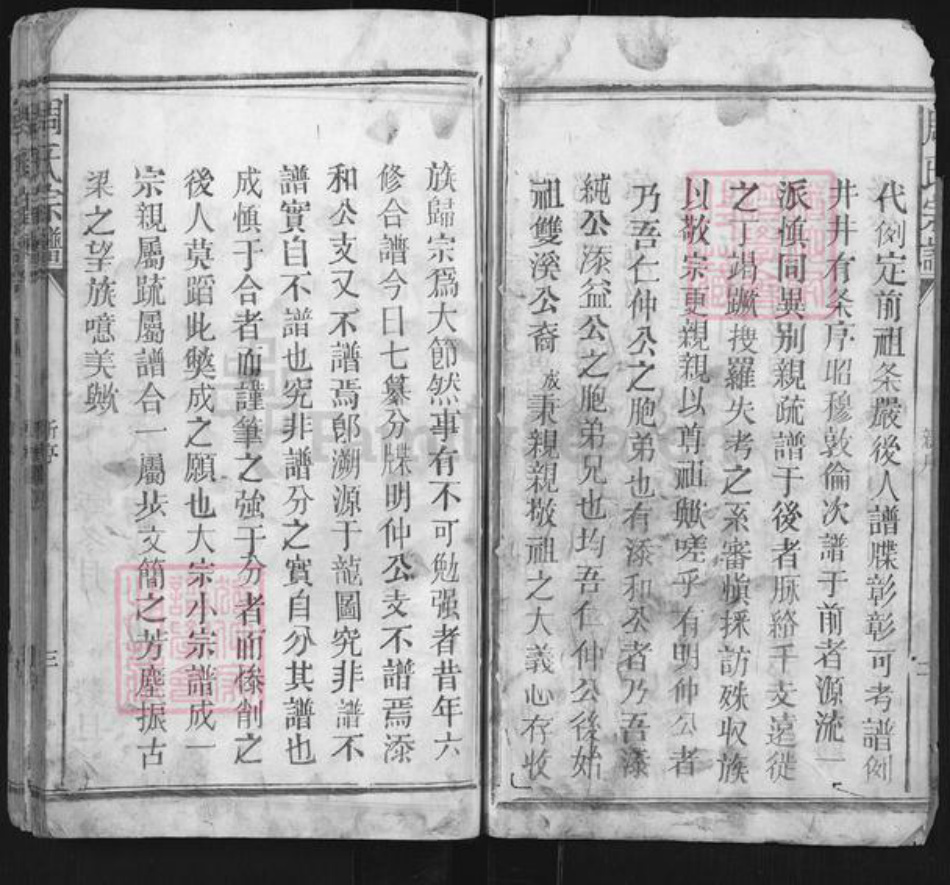 代例定前祖条嚴後人譜牒彰彰可考譜例
井井有条序昭穆敦倫次譜于前者源流一
派慎同異別親疏譜于後者脉絡千支遠徙
之丁竭蹶搜羅失考之系審愼採訪殊収族
以敬宗更親親以尊祖歟嗟乎有明仲公者
乃吾仁仲公之胞弟也有添和公者乃吾添
純公添益公之胞弟兄也均吾仁仲公後始
祖雙溪公裔成秉親親敬祖之大義心存收
族歸宗爲大節然事有不可勉强者昔年六
修合譜今日七纂分牒明仲公支不譜焉添
和公支又不譜焉卽溯源于龍圖究非譜不
譜實自不譜也究非譜分之實自分其譜也
成愼于合者而謹筆之強于分者而慘削之
後人莫蹈此獘成之願也大宗小宗譜成一
宗親屬疏屬譜合一屬步文簡之芳塵振古
梁之望族噫美歟
周氏宗譜
新序
三
周氏宗譜